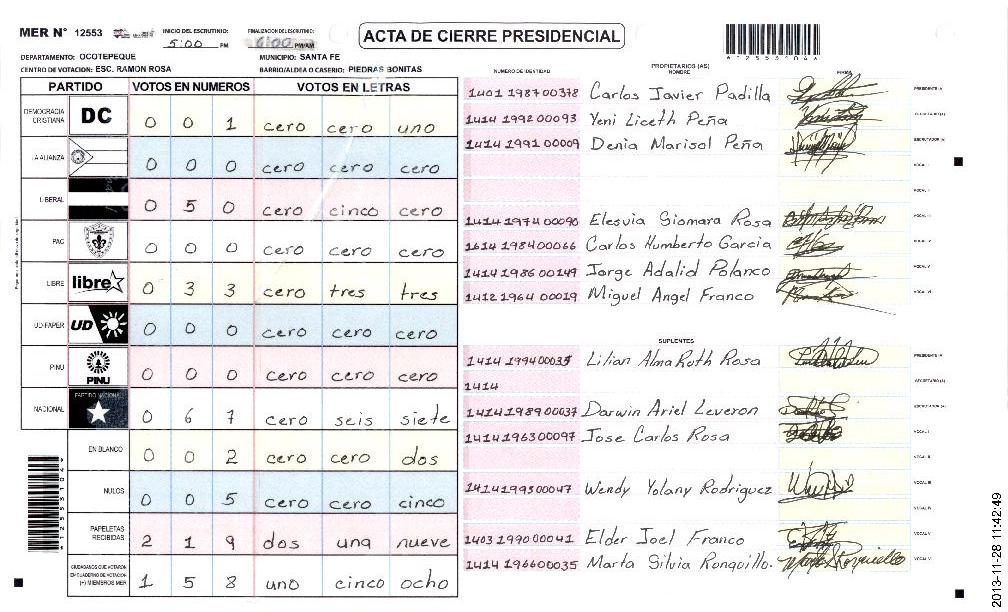 MER N° 12553
INICIO DEL ESCRUTINIO: 5:00 PM
FINALIZACION DEL ESCRUTINIO: 6:00 PM/AM
ACTA DE CIERRE PRESIDENCIAL
DEPARTAMENTO: OCOTEPEQUE
MUNICIPIO: SANTA FE
CENTRO DE VOTACION: ESC. RAMON ROSA
BARRIO/ALDEA O CASERIO: PIEDRAS BONITAS
PARTIDO VOTOS EN NUMEROS VOTOS EN LETRAS
DEMOCRACIA CRISTIANA DC 0 0 1 cero cero uno
LA ALIANZA 0 0 0 cero cero cero
LIBERAL 0 5 0 cero cinco cero
PAC 0 0 0 cero cero cero
LIBRE libre 0 3 3 cero tres tres
UD-FAPER UD 0 0 0 cero cero cero
PINU PINU 0 0 0 cero cero cero
NACIONAL PARTIDO NACIONAL 0 6 7 cero seis siete
EN BLANCO 0 0 2 cero cero dos
NULOS 0 0 5 cero cero cinco
PAPELETAS RECIBIDAS 2 1 9 dos una nueve
CIUDADANOS QUE VOTARON EN CUADERNO DE VOTACION (+) MIEMBROS MER 1 5 8 uno cinco ocho
PROPIETARIOS (AS)
NUMERO DE IDENTIDAD NOMBRE FIRMA
1401 1987 00378 Carlos Javier Padilla PRESIDENTE/A
1414 1992 00093 Yeni Liceth Peña SECRETARIO (A)
1414 1991 00009 Denia Marisol Peña ESCRUTADOR (A)
VOCAL I
VOCAL II
1414 1974 00090 Elesvia Siomara Rosa VOCAL III
1614 1984 00066 Carlos Humberto Garcia VOCAL IV
1414 1986 00149 Jorge Adalid Polanco VOCAL V
1412 1964 00019 Miguel Angel Franco VOCAL VI
SUPLENTES
1414 1994 00035 Lilian Alma Ruth Rosa PRESIDENTE/A
1414 SECRETARIO (A)
1414 1989 00037 Darwin Ariel Leveron ESCRUTADOR (A)
1414 1963 00097 Jose Carlos Rosa VOCAL I
VOCAL II
1414 1995 00047 Wendy Yolany Rodriguez VOCAL III
VOCAL IV
1403 1990 00041 Elder Joel Franco VOCAL V
1414 1966 00035 Marta Silvia Ronquillo. VOCAL VI
2013-11-28 11:42:49